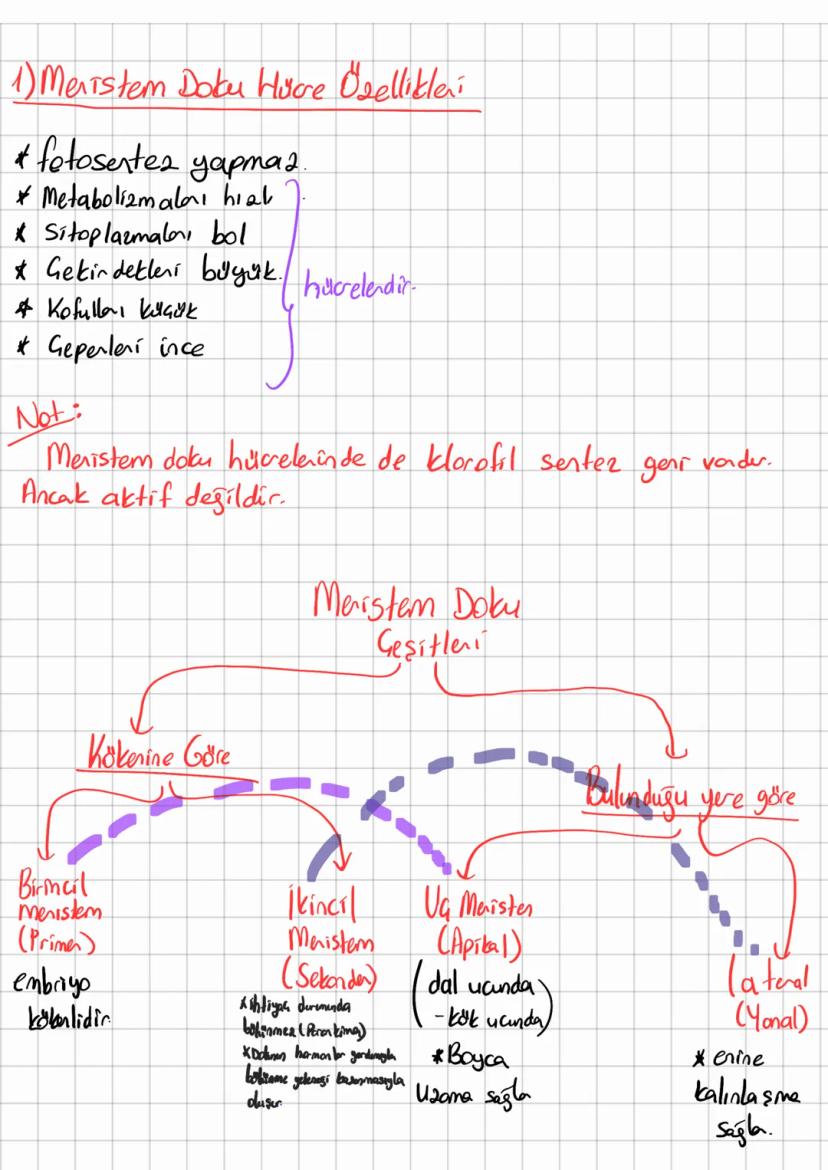 1) Meristem Doku Hücre Özellikleri
* fotosentez yapmaz.
* Metabolizmaları hızlı
* Sitoplazmaları bol
* Çekirdekleri büyük.
* Kofulları küçük
* Çeperleri ince
hücrelerdir.
Not:
Meristem doku hücrelerinde de klorofil sentez geni vardır.
Ancak aktif değildir.
Meristem Doku
Çeşitleri
Kökenine Göre
Bulunduğu yere göre
Birincil
meristem
(Primer)
embriyo
kökenlidir
İkincil
Meristem
(Sekonder)
* ihtiyaç durumunda
bölünmez (Parankima)
* Dokunun hormonlar yardımıyla
bölünme yeteneği kazanmasıyla
oluşur.
Uç Meristem
(Apikal)
(dal ucunda
- kök ucunda)
* Boyca
Uzama sağlar
Lateral
(Yanal)
* enine
kalınlaşma
sağlar.